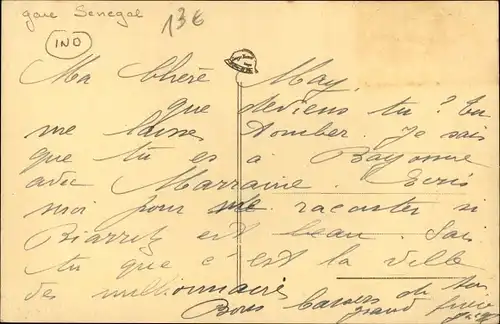 gare Senegal
13€
IND
Ma Chère May,
que deviens tu ? Tu
me laisses tomber. Je sais
que tu es à Bayonne
avec Marraine. Ecris
moi pour me raconter si
Biarritz est beau. Sais
tu que c'est la ville
des millionnaires
Bons baisers de ton
grand frère